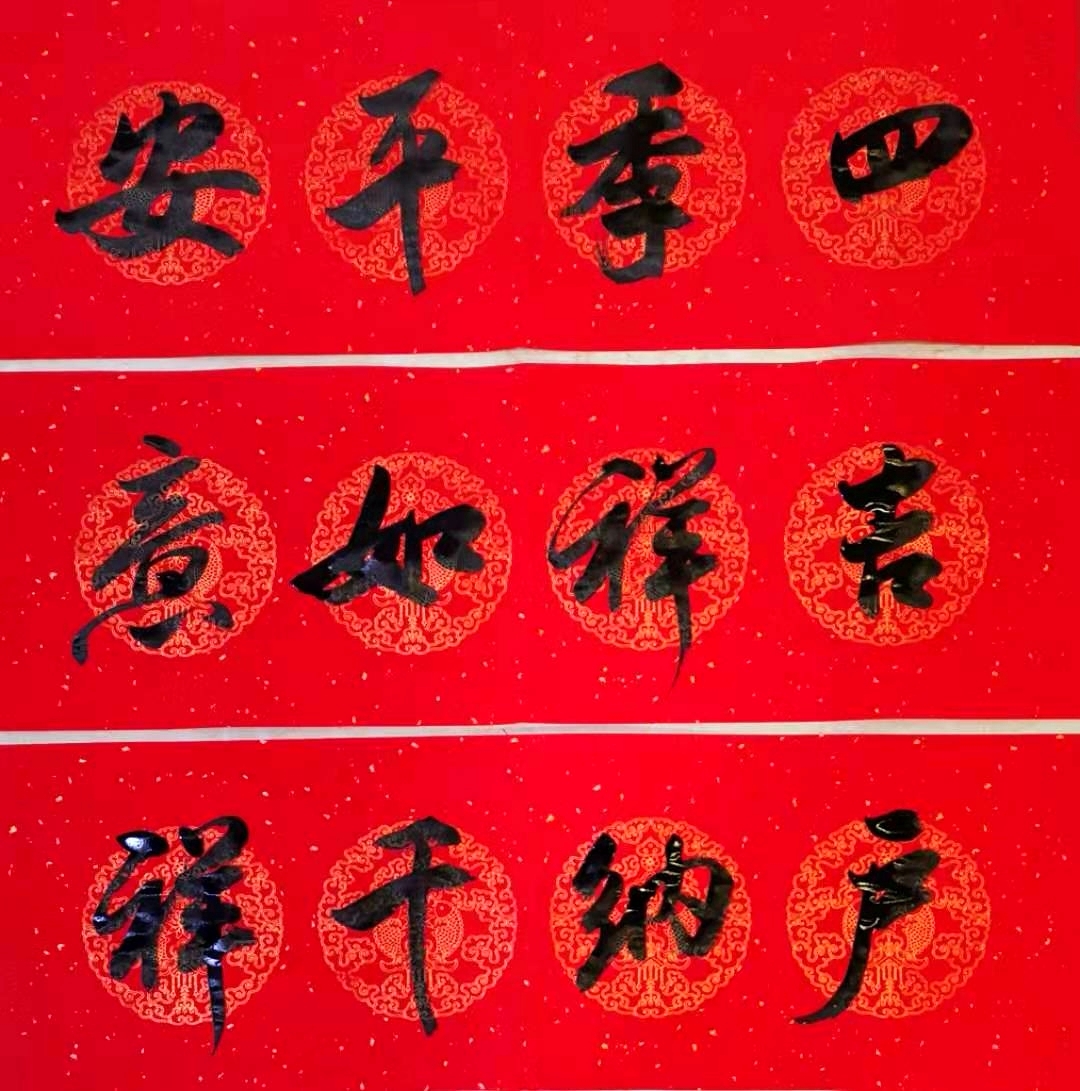 四季平安
吉祥如意
户纳千祥